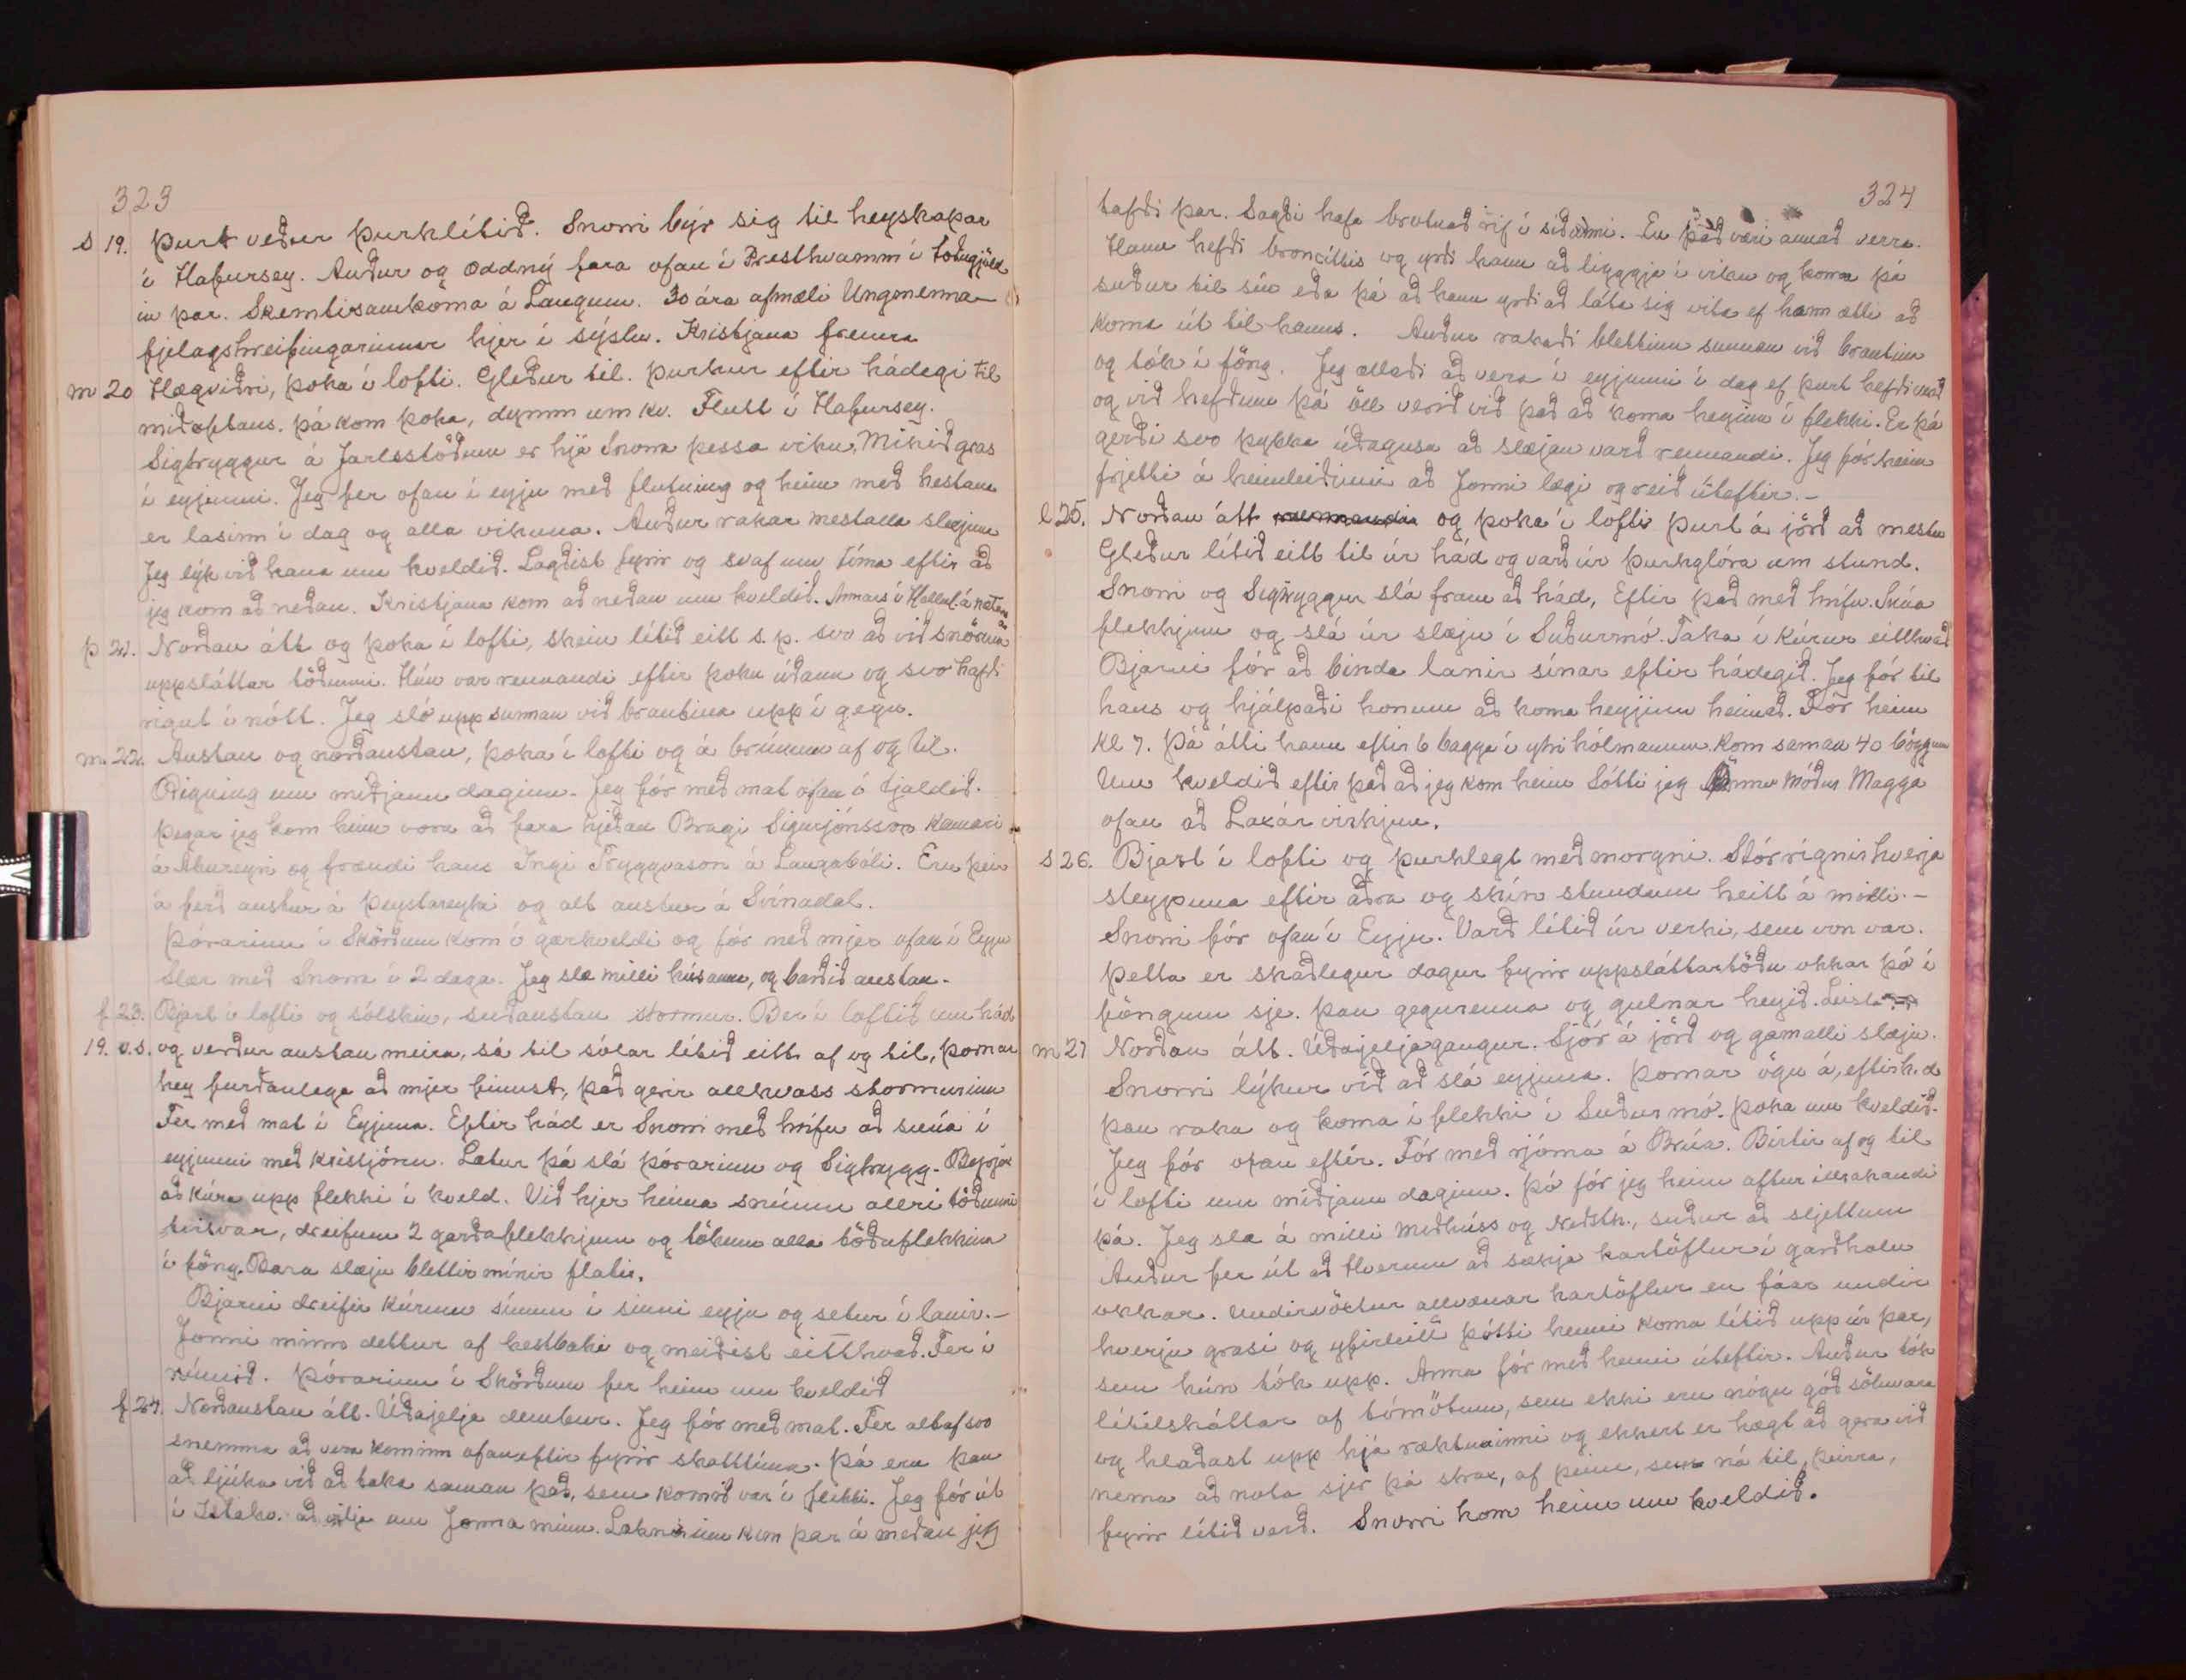 323
s 19. Þurt veður þurklítið. Snorri býr sig til heyskapar
í Hafursey. Auður og Oddný fara ofan í Presthvamm í töðugjöld
in þar. Skemtisamkoma á Laugum. 30 ára afmæli Ungmenna-
fjelagshreifingarinnar hjer í sýslu. Kristjana fremra
m 20 Hægviðri, þoka í lofti. Gleður til. þurkur eftir hádegi til
miðaftans. þá kom þoka, dymm um kv. Flutt í Hafursey.
Sigtryggur á Jarlsstöðum er hjá Snorra þessa viku. Mikið gras
í eyjunni. Jeg fer ofan í eyju með flutning og heim með hestana
er lasinn í dag og alla vikuna. Auður rakar mestalla slæjuna
Jeg lýk við hana um kveldið. Lagðist fyrir og svaf um tíma eftir að
jeg kom að neðan. Kristjana kom að neðan um kveldið.
þ 21. Norðan átt og þoka í lofti, skein lítið eitt s.p. svo að við snörum
uppsláttar töðunni. Hún var rennandi eftir þoku úðann og svo hafði
rignt í nótt. Jeg sló upp sunnan við brautina upp í gegn.
m. 22. Austan og norðaustan, þoka í lofti og á brúnum af og til.
Rigning um miðjann daginn. Jeg fór með mat ofan í tjaldið.
þegar jeg kom heim voru að fara hjeðan Bragi Sigurjónsson kennari
á Akureyri og frændi hans Ingi Tryggvason á Laugabóli. Eru þeir
á ferð austur á Þeystareyki og alt austur á Svínadal.
Þórarinn í Skörðum kom í gærkveldi og fór með mjer ofan í Eyju
Slær með Snorra í 2 daga. Jeg slæ milli húsanna, og barðið austan.
f 23. Bjart í lofti og sólskin, suðaustan stormur. Ber í loftið um hád
19. v.s. og verður austan meira, sá til sólar lítið eitt af og til, þornar
hey furðanlega að mjer finnst, það gerir allhvass stormurinn
Fer með mat í Eyjuna. Eftir hád er Snorri með hrífu að snúa í
eyjunni með Kristjönu. Lætur þá slá Þórarinn og Sigtrygg. Byrja
að kúra upp flekki í kveld. Við hjer heima snúum allri töðunni
tvisvar, dreifum 2 garðaflekkjum og tökum alla töðuflekkina
í föng. Bara slæju blettir mínir flatir.
Bjarni dreifir kúrum sínum í sinni eyju og setur í lanir.-
Jonni minn dettur af hestbaki og meiðist eitthvað. Fer í
rúmið. Þórarinn í Skörðum fer heim um kveldið
f 24. Norðaustan átt. Úðajelja dembur. Jeg fór með mat. Fer altaf svo
snemma að vera kominn ofaneftir fyrir skattíma. Þá eru þau
að ljúka við að taka saman það, sem komið var í flekki. Jeg fór út
í að vilja um Jonna minn. Læknirinn kom þar á meðan jeg
324
tafði þar. Sagði hafa brotnað rif í síðunni. En það væri annað verra.
Hann hefði broncittis og yrði hann að liggja í viku og koma þá
suður til sín eða þá að hann yrði að láta sig vita ef hann ætti að
koma út til hanns. Auður rakaði blettinn sunnan við brautina
og tók í föng. Jeg ætlaði að vera í eyjunni í dag ef þurt hefði verið
og við hefðum þá öll verið við það að koma heyinu í flekki. En þá
gerði svo þykka úðagusu að slæjan varð rennandi. Jeg fór heim
frjetti á heimleiðinni að Jonni lægi og reið úteftir.-
l 25. Norðan átt og þoka í lofti þurt á jörð að mestu
Gleður lítið eitt til úr hád og varð úr þurkglóra um stund.
Snorri og Sigtryggur slá fram að hád, Eftir það með hrífu. Snúa
flekkjum og slá úr slæju í Suðurmó. Taka í kúrur eitthvað
Bjarni fór að binda lanir sínar eftir hádegið. Jeg fór til
hans og hjálpaði honum að koma heyjinu heimað. Fór heim
kl 7. Þá átti hann eftir 6 bagga í ytri hólmanum. Kom saman 40 böggum
Um kveldið eftir það að jeg kom heim sótti jeg Önnu móður Magga
ofan að Laxárvirkjun.
s 26. Bjart í lofti og þurklegt með morgni. Stórrignir hverja
steypuna eftir aðra og skín stundum heitt á milli.-
Snorri fór ofan í Eyju. Varð lítið úr verki, sem von var.
Þetta er skaðlegur dagur fyrir uppsláttartöðu okkar þó í
föngum sje. þau gegnrenna og gulnar heyið.
m 27 Norðan átt. Úðajeljagangur. Sjór á jörð og gamalli slæju.
Snorri lýkur við að slá eyjuna. Þornar ögn á, eftir h.d
þau raka og koma í flekki í Suðurmó. Þoka um kveldið.
Jeg fór ofan eftir. Fór með rjóma á Brúa. Birtir af og til
í lofti um miðjann daginn. Þó fór jeg heim aftur
þá. Jeg slæ á milli Miðhúss og Neðsth., suður að sljettum
Auður fer út að Hverum að sækja kartöflur í garðholu
okkar. Undirvöxtur allvænar kartöflur en fáar undir
hverju grasi og yfirleitt þótti henni koma lítið upp úr þar,
sem hún tók upp. Anna fór með henni úteftir. Auður tók
lítilsháttar af tómötum, sem ekki eru nógu góð söluvara
og hlaðast upp hjá ræktuninni og ekkert er hægt að gera við
nema að nota sjer þá strax, af þeim, sem ná til þeirra,
fyrir lítið verð. Snorri kom heim um kveldið.